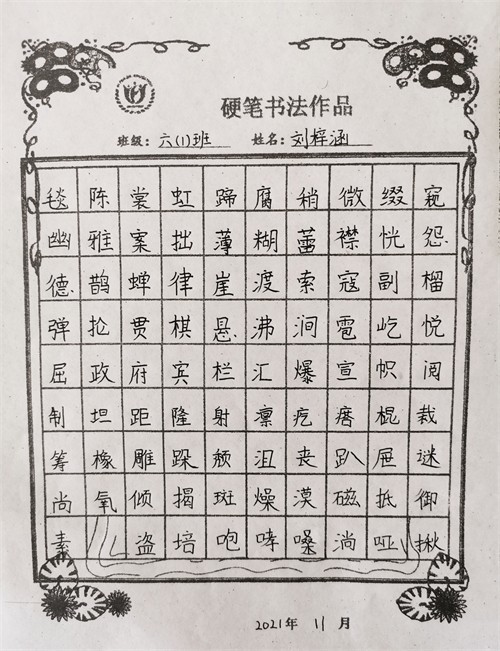 硬笔书法作品
班级：六(1)班 姓名：刘梓涵
毯陈裳虹蹄腐稍微缀窥
幽雅案拙薄糊蕾襟恍怨
德鹊蝉律崖渡索寇副榴
弹抡贯棋悬沸涧雹屹悦
屈政府宾栏汇爆宣帜阅
制坦距隆射凛疙瘩棍裁
筹橡雕跺颓沮丧趴屉谜
尚氧倾揭斑燥漠磁抵御
素盗培咆哮嗓淌哑揪
2021年 11月